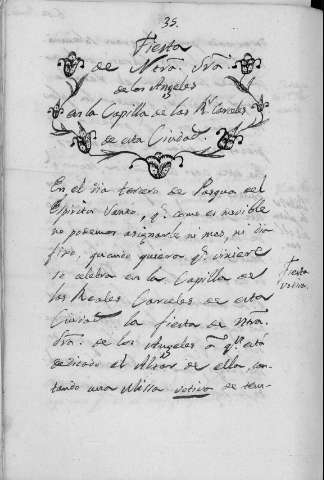 35.
Fiesta
de Ntra. Sra.
de los Angeles
en la Capilla de las Rs. Carceles
de esta Ciudad.
En el dia tercero de Pasqua del
Espiritu Santo, q. como es movible
no podemos asignarle ni mes, ni dia
fixo, quando quiera q. viniere
se celebra en la Capilla de
las Reales Carceles de esta
Ciudad la fiesta de Ntra.
Sra. de los Angeles á qn. está
dedicado el Altar de ella, can-
tando una Missa votiva de tem-
Fiesta
votiva.